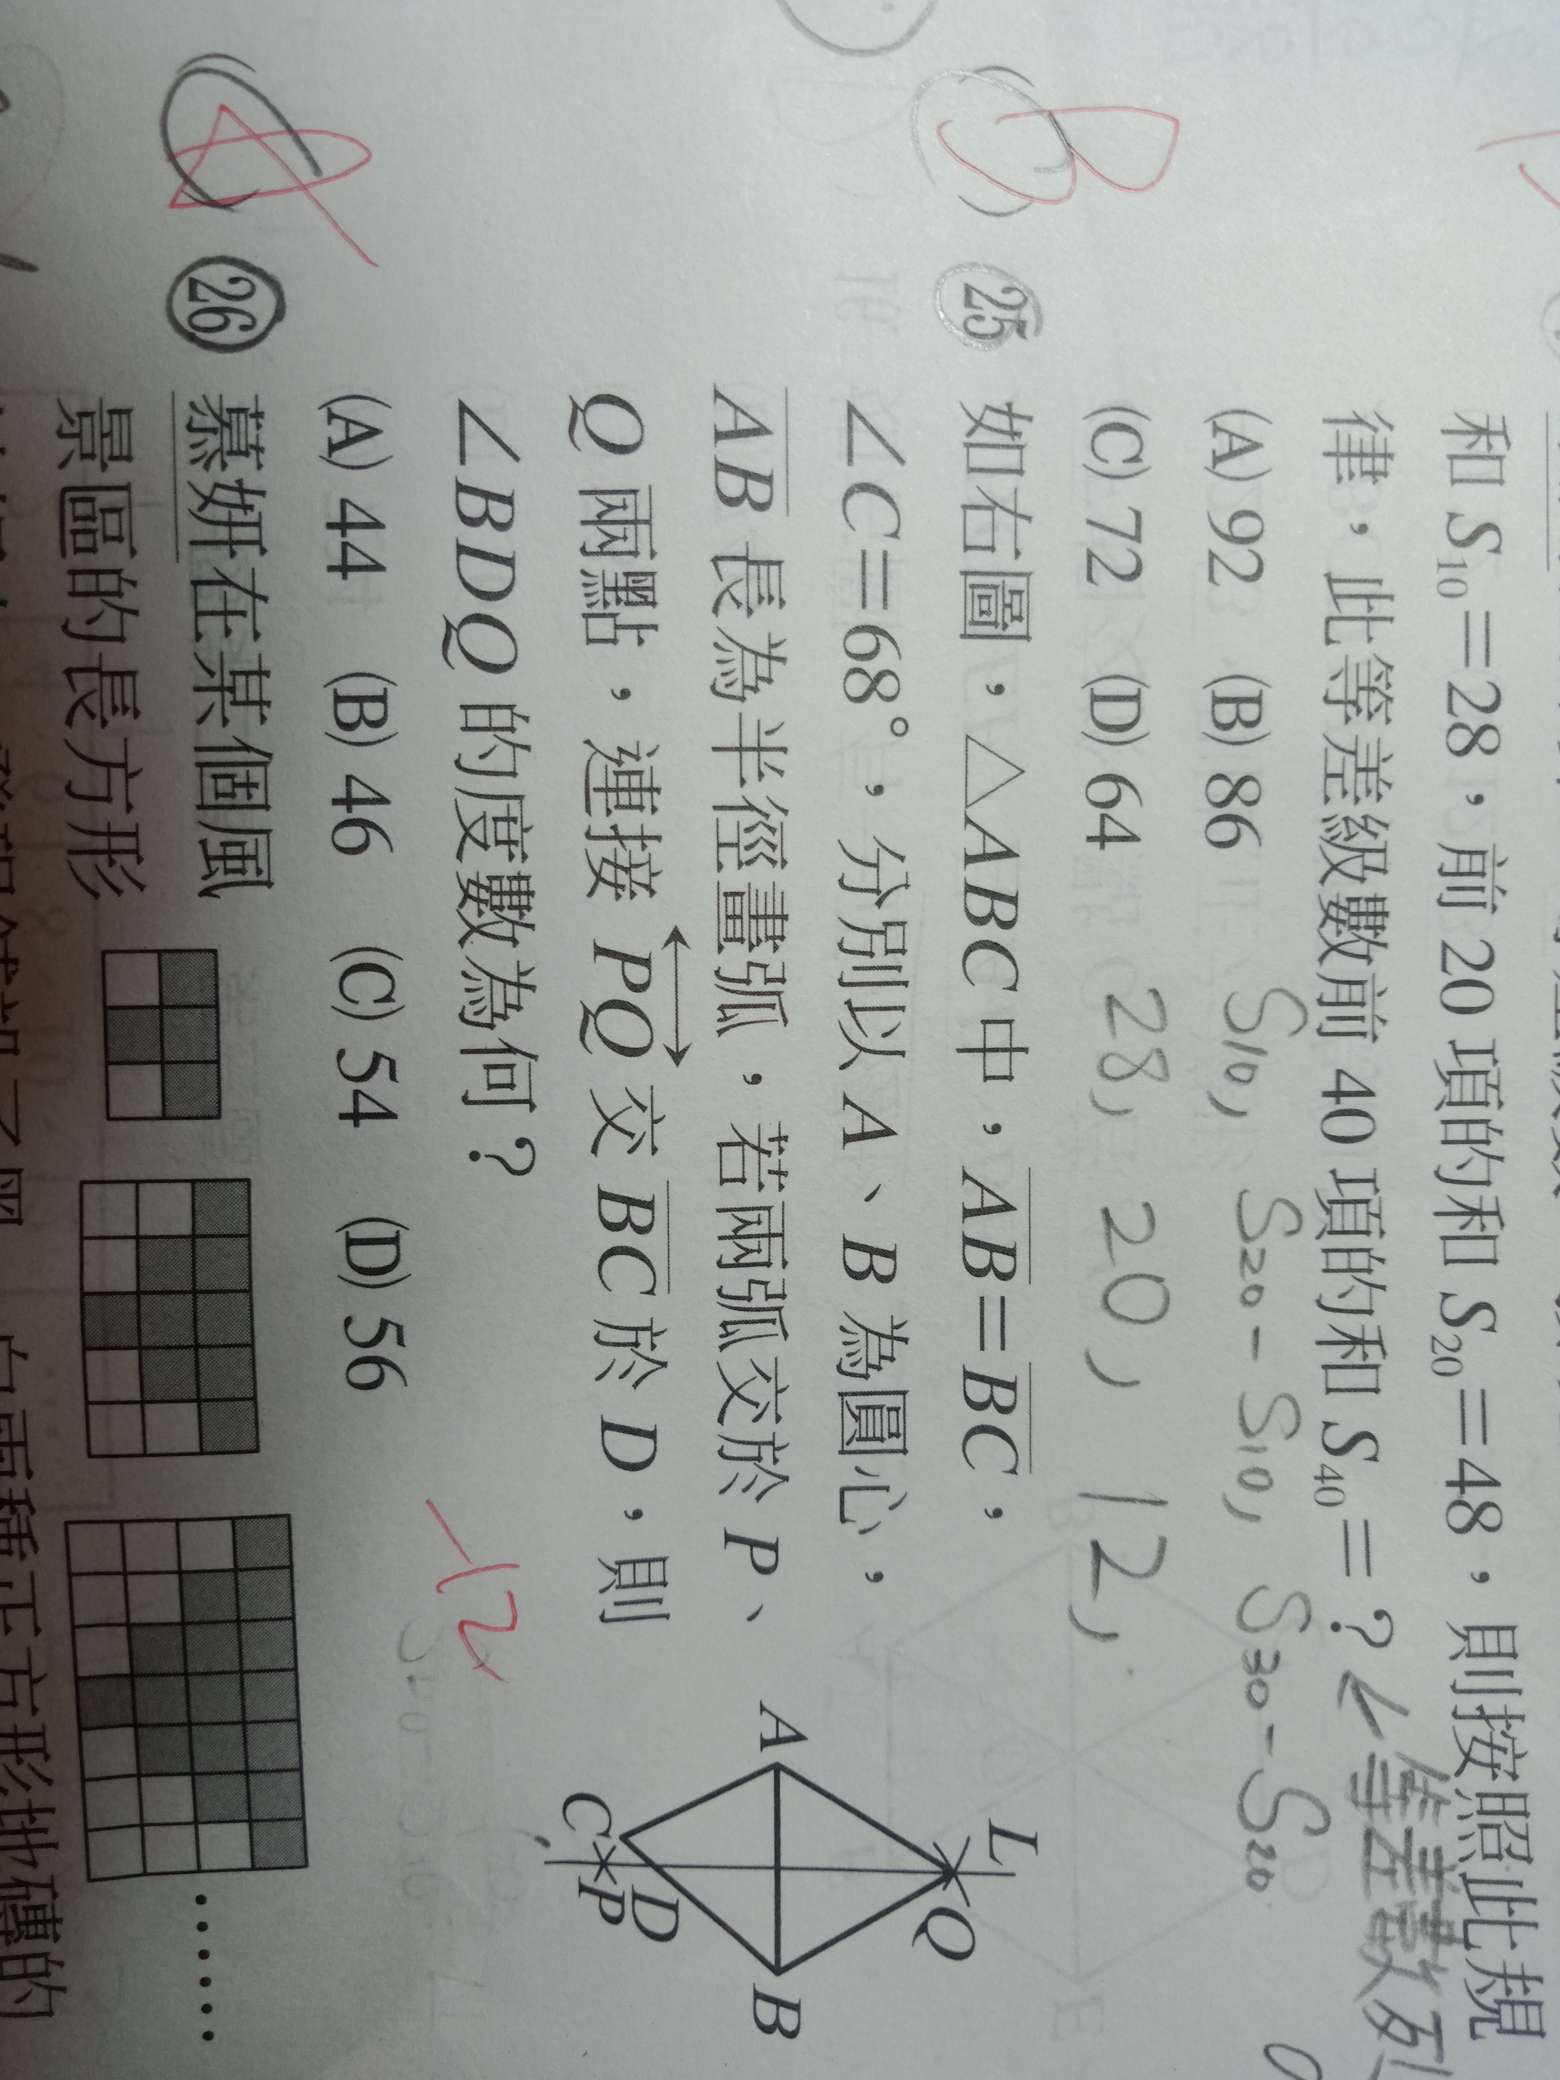 和 S₁₀=28，前 20 項的和 S₂₀=48，則按照此規
律，此等差級數前 40 項的和 S₄₀=？
(A) 92 (B) 86
(C) 72 (D) 64
←等差數列
S10, S20-S10, S30-S20
28, 20, 12,
B
25 如右圖，△ABC 中，AB=BC，
∠C=68°，分別以 A、B 為圓心，
AB 長為半徑畫弧，若兩弧交於 P、
Q 兩點，連接 PQ 交 BC 於 D，則
∠BDQ 的度數為何？
(A) 44 (B) 46 (C) 54 (D) 56
L
Q
A
B
D
C
P
-12
26 慕妍在某個風
景區的長方形
……